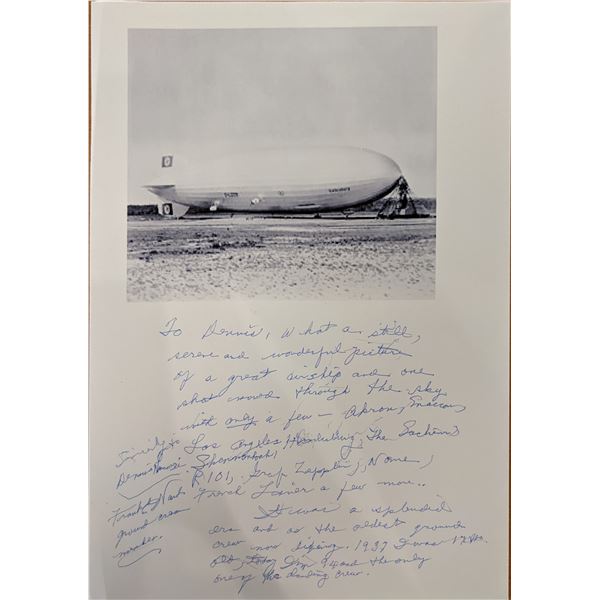 To Dennis, What a still,
serene and wonderful picture
of a great airship and one
that moved through the sky
with only a few — Akron, Macon,
Los Angeles, Hindenburg, The
Shenandoah,
R 101, Graf Zeppelin, Rome,
a few more..
It was a splendid
era and as the oldest ground
crew now 1937 I was
old, 94 and the only
one of the landing crew.
Sincerely
Frank Ward
ground crew
member.